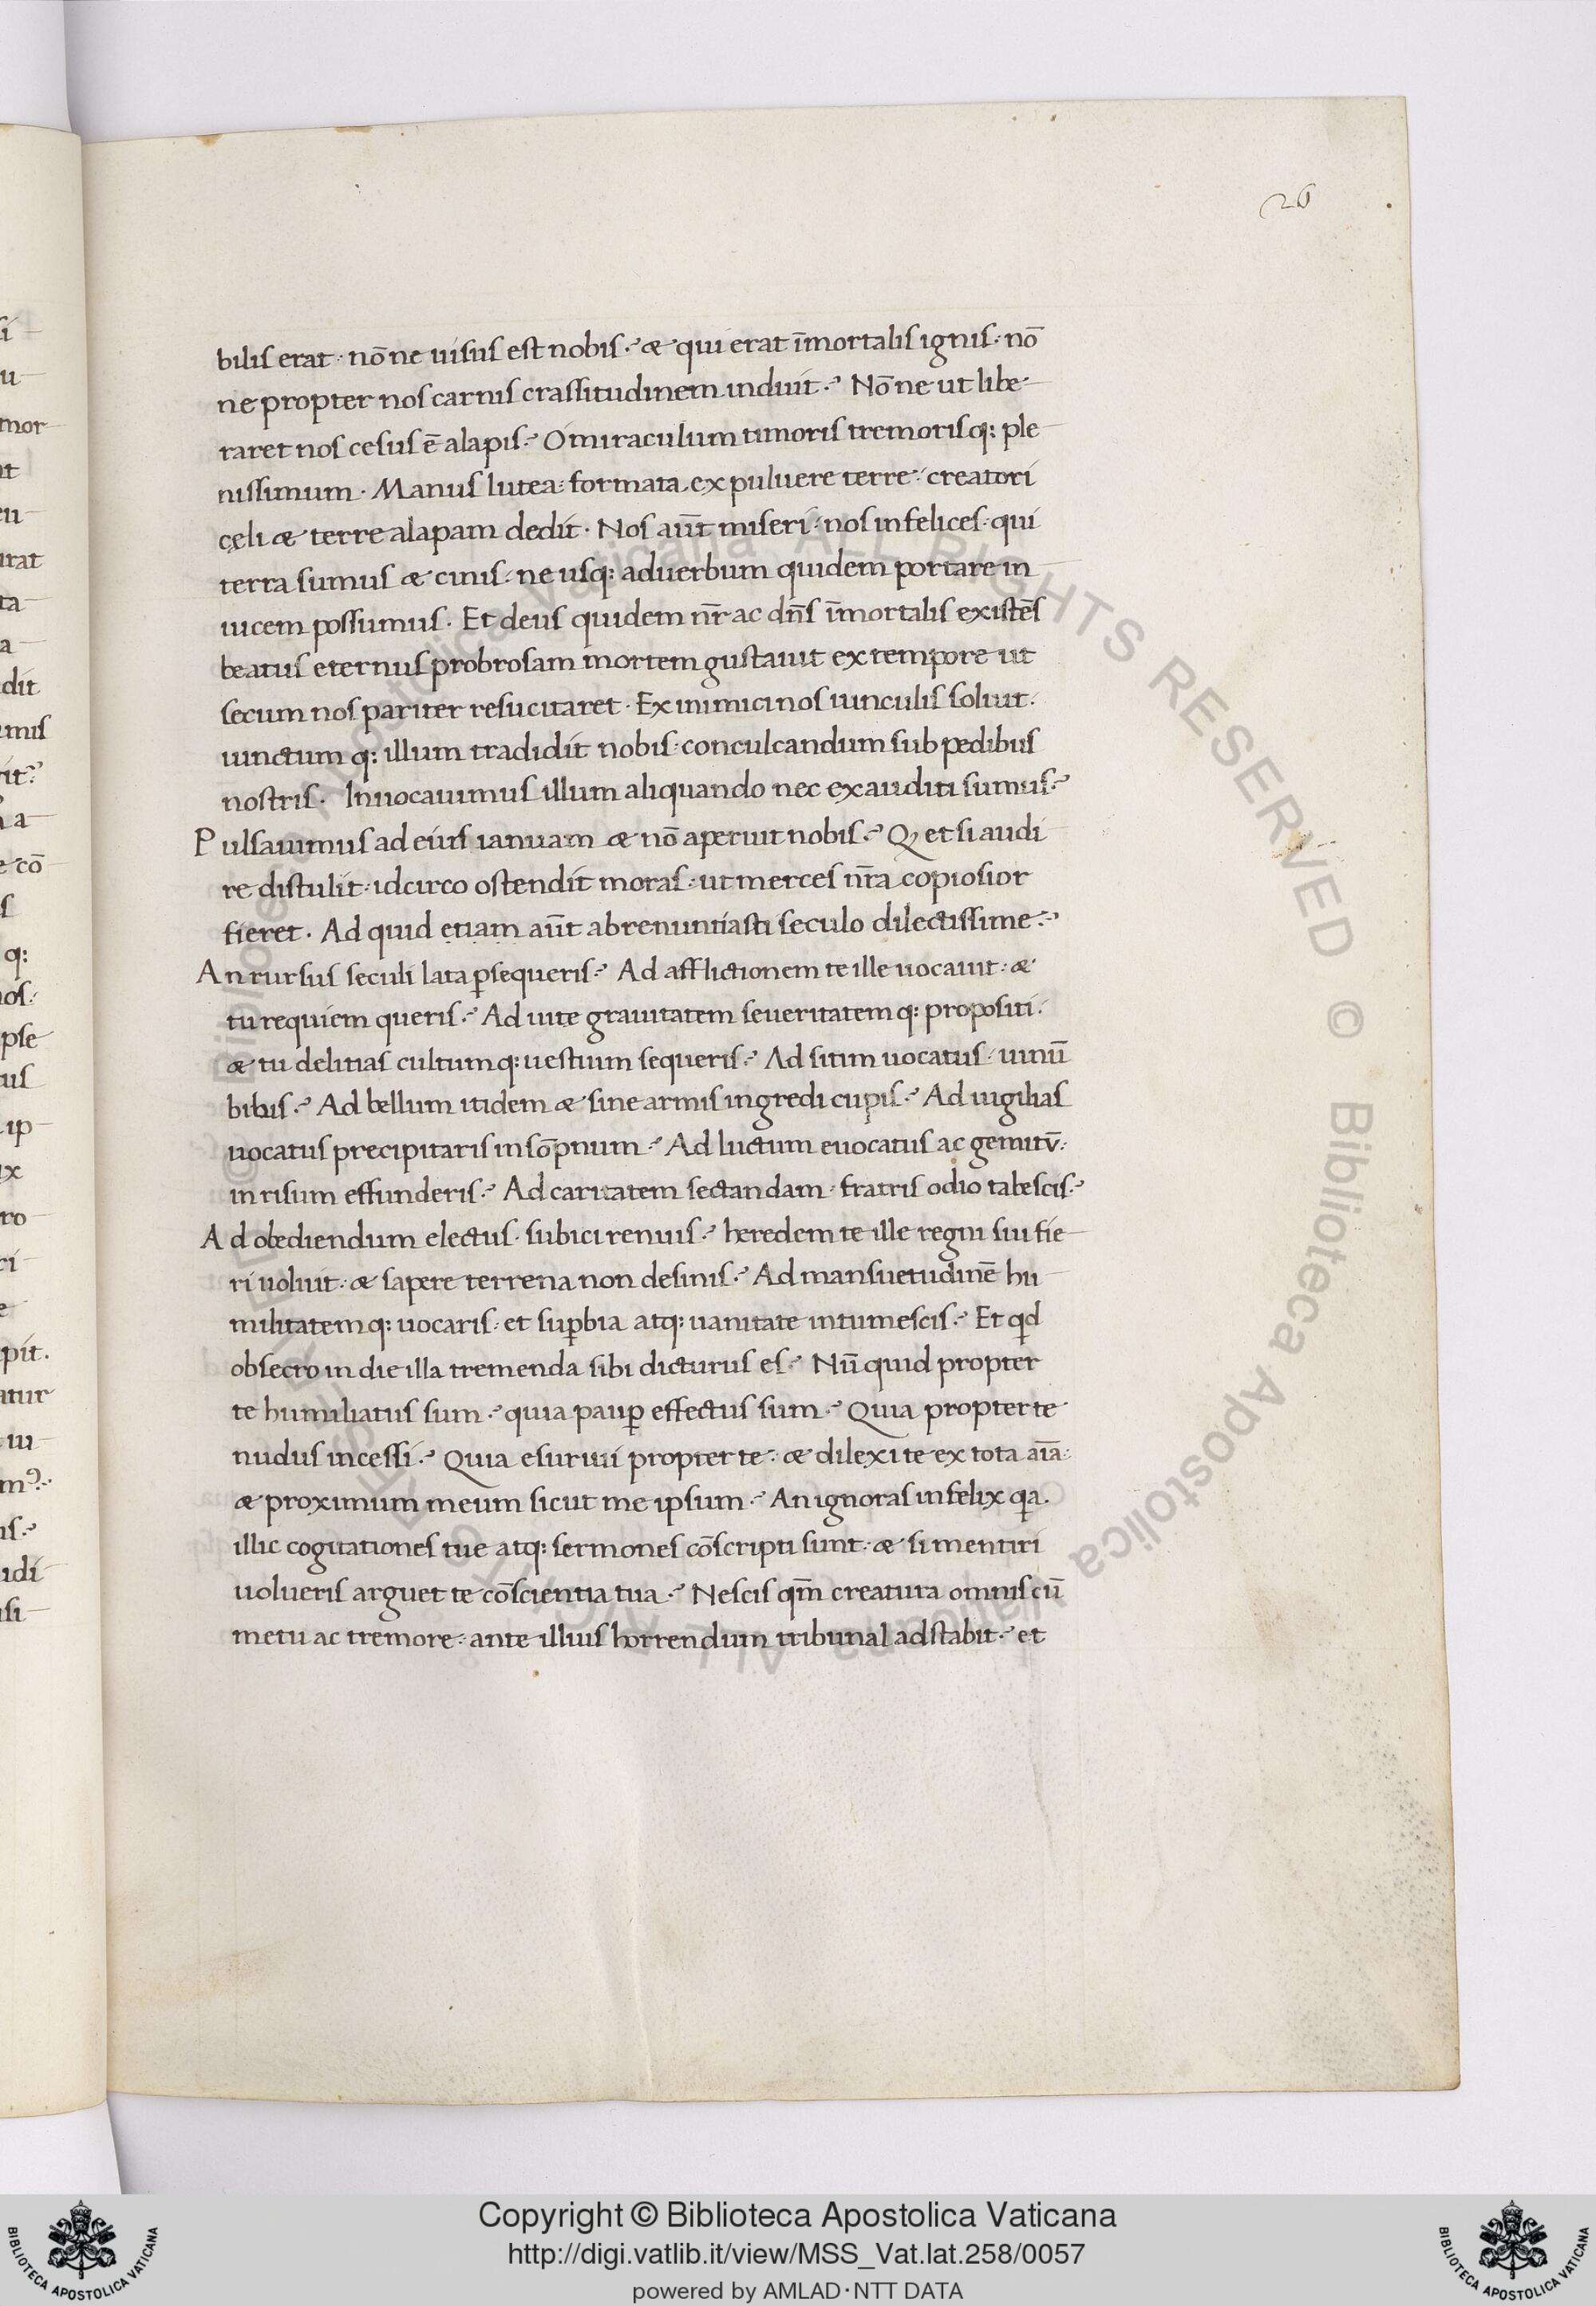 26
bilis erat· nō ne uisus est nobis? & qui erat īmortalis ignis· nō
ne propter nos carnis crassitudinem induit? Nō ne ut libe-
raret nos cesus ē alapis? O miraculum timoris tremorisq: ple
nissimum. Manus lutea: formata ex puluere terre: creatori
cęli & terre alapam dedit. Nos aūt miseri: nos infelices· qui
terra sumus & cinis: ne usq: ad uerbum quidem portare in
uicem possumus. Et deus quidem nr̄ ac dn̄s īmortalis existēs
beatus eternus probrosam mortem gustauit ex tempore ut
secum nos pariter resucitaret. Ex inimici nos uinculis soluit:
uinctum q: illum tradidit nobis: conculcandum sub pedibus
nostris. Inuocauimus illum aliquando nec exauditi sumus?
Pulsauimus ad eius ianuam & nō aperuit nobis? Q, et si audi
re distulit: idcirco ostendit moras: ut merces nr̄a copiosior
fieret. Ad quid etiam aūt abrenuntiasti seculo dilectissime?
An rursus seculi lata p̱sequeris? Ad afflictionem te ille uocauit: &
tu requiem queris? Ad uite grauitatem seueritatem q: propositi:
& tu delitias cultum q: uestium sequeris? Ad sitim uocatus: uinū
bibis? Ad bellum itidem & sine armis ingredi cupis? Ad uigilias
uocatus precipitaris in sōpnum? Ad luctum euocatus ac gemitū:
in risum effunderis? Ad caritatem sectandam· fratris odio tabescis?
Ad obediendum electus· subici renuis? heredem te ille regni sui fie-
ri uoluit: & sapere terrena non desinis? Ad mansuetudinē hu
militatem q: uocaris: et sup̱bia atq: uanitate intumescis? Et qd
obsecro in die illa tremenda sibi dicturus es? Nū quid propter
te humiliatus sum? quia paup̱ effectus sum? Quia propter te
nudus incessi? Quia esuriui propter te: & dilexi te ex tota aīa:
& proximum meum sicut me ipsum? An ignoras infelix qa.
illic cogitationes tue atq: sermones cōscripti sunt: & si mentiri
uolueris arguet te cōscientia tua? Nescis qm̄ creatura omnis cū
metu ac tremore: ante illius horrendum tribunal adstabit? et
Copyright © Biblioteca Apostolica Vaticana
http://digi.vatlib.it/view/MSS_Vat.lat.258/0057
powered by AMLAD·NTT DATA